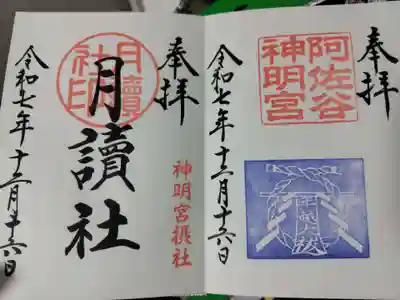 奉拝
阿佐谷
神明宮
令和七年十二月十六日
奉拝
月讀
社印
月讀社
神明宮摂社
令和七年十二月十六日